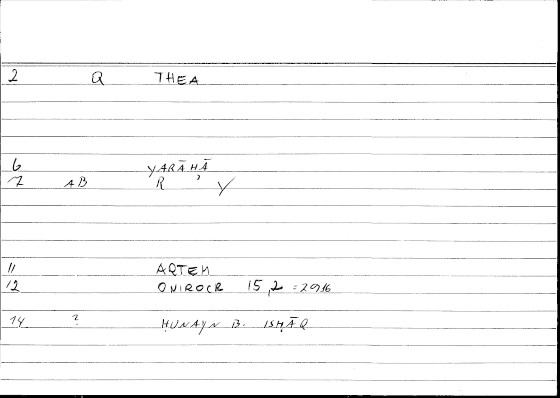 2 Q THEA
6 YARĀHĀ
7 AB R ʾ Y
11 ARTEM
12 ONIROCR 15,2 = 2916
14 ? ḤUNAYN B. ISḤĀQ